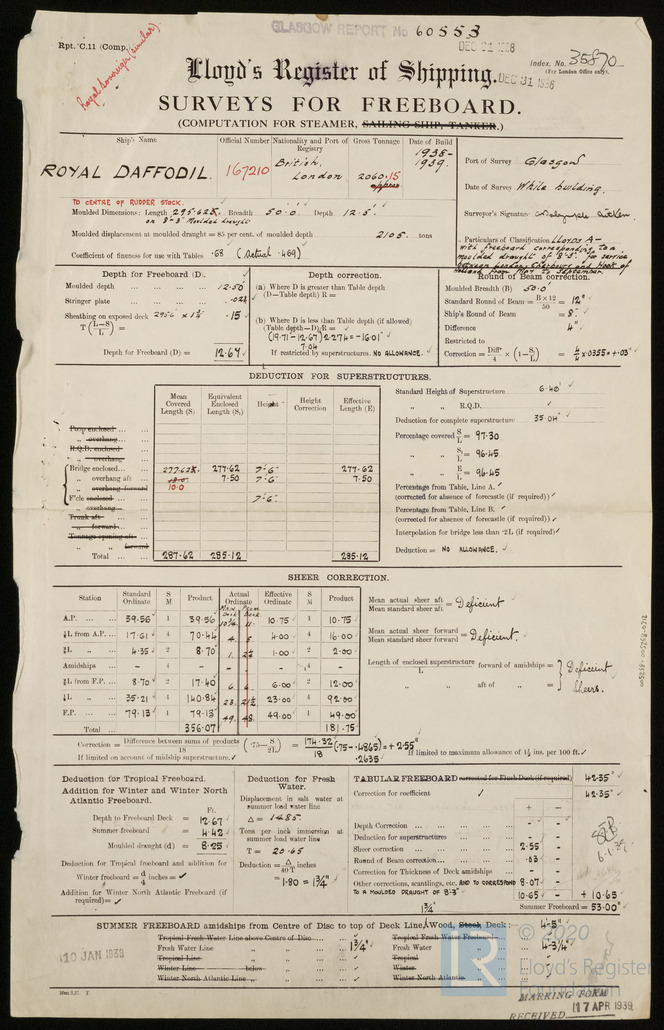 GLASGOW REPORT No 60553
Rpt. C.11 (Comp.)
DEC 31 1938
Royal Sovereign (similar)
Index. No. 35870
(For London Office only).
Lloyd's Register of Shipping.
DEC 31 1938
SURVEYS FOR FREEBOARD.
(COMPUTATION FOR STEAMER, SAILING SHIP, TANKER.)
Ship's Name
Official Number
Nationality and Port of Registry
Gross Tonnage
Date of Build
ROYAL DAFFODIL.
167210
British.
London
2060.15
approx
1938-
1939.
Port of Survey Glasgow
Date of Survey While building.
Surveyor's Signature
TO CENTRE OF RUDDER STOCK.
Moulded Dimensions: Length 295.625. Breadth 50.0 Depth 12.5.
on 8'-3" Moulded draught
Moulded displacement at moulded draught = 85 per cent. of moulded depth 2105. tons
Coefficient of fineness for use with Tables .68 (actual .469)
Particulars of Classification LLOYDS A-
with freeboard corresponding to a
moulded draught of 8'-3" for service
between London, Cherbourg and Hook of
Holland from May to September
Depth for Freeboard (D).
Moulded depth 12.50
Stringer plate .024
Sheathing on exposed deck 2956 × 1¾ .15
T(L-S/L) =
Depth for Freeboard (D) = 12.67
Depth correction.
(a) Where D is greater than Table depth
(D—Table depth) R =
(b) Where D is less than Table depth (if allowed)
(Table depth—D) R =
(19.71-12.67) 2.274 = -16.01
7.04
If restricted by superstructures. NO ALLOWANCE.
Round of Beam correction.
Moulded Breadth (B) 50.0
Standard Round of Beam = B×12/50 = 12"
Ship's Round of Beam = 8"
Difference 4"
Restricted to
Correction = Diff/4 × (1-S/L) = 4/4 × .0355 = +.03
DEDUCTION FOR SUPERSTRUCTURES.
Mean Covered Length (S)
Equivalent Enclosed Length (S₁)
Height
Height Correction
Effective Length (E)
Poop enclosed
„ overhang
R.Q.D. enclosed
„ overhang
Bridge enclosed 277.625. 277.62 7'-6" 277.62
„ overhang aft 10.0 7.50 7'-6" 7.50
„ overhang forward 10.0
F'cle enclosed 7'-6"
„ overhang
Trunk aft
„ forward
Tonnage opening aft
„ „ forward
Total 287.62 285.12 285.12
Standard Height of Superstructure 6.40
„ „ R.Q.D.
Deduction for complete superstructure 35.04
Percentage covered S/L = 97.30
„ „ S₁/L = 96.45
„ „ E/L = 96.45
Percentage from Table, Line A.
(corrected for absence of forecastle (if required))
Percentage from Table, Line B.
(corrected for absence of forecastle (if required))
Interpolation for bridge less than ·2L (if required)
Deduction = NO ALLOWANCE.
SHEER CORRECTION.
Station
Standard Ordinate
S M
Product
Actual Ordinate
Effective Ordinate
S M
Product
MAIN DECK
PROM DECK
A.P. 39.56 1 39.56 10¾ 11. 10.75 1 10.75
⅙L from A.P. 17.61 4 70.44 4. 5 4.00 4 16.00
⅓L „ 4.35 2 8.70 1. 2½ 1.00 2 2.00
Amidships - 4 - - - - 4 -
⅓L from F.P. 8.70 2 17.40 6. 6. 6.00 2 12.00
⅙L „ 35.21 4 140.84 23. 21½ 23.00 4 92.00
F.P. 79.13 1 79.13 49. 48. 49.00 1 49.00
Total 356.07 181.75
Mean actual sheer aft / Mean standard sheer aft = Deficient
Mean actual sheer forward / Mean standard sheer forward = Deficient.
Length of enclosed superstructure / L forward of amidships =
„ „ aft of „ =
Deficient
Sheers.
Correction = Difference between sums of products / 18 (·75 - S/2L) = 174.32/18 (.75-.4865) = +2.55"
.2635
If limited on account of midship superstructure.
If limited to maximum allowance of 1½ ins. per 100 ft.
Deduction for Tropical Freeboard.
Addition for Winter and Winter North Atlantic Freeboard.
Ft.
Depth to Freeboard Deck = 12.67
Summer freeboard = 4.42
Moulded draught (d) = 8.25
Deduction for Tropical freeboard and addition for
Winter freeboard = d/4 inches =
Addition for Winter North Atlantic Freeboard (if required) =
Deduction for Fresh Water.
Displacement in salt water at summer load water line
Δ = 1485.
Tons per inch immersion at summer load water line
T = 20.65
Deduction = Δ/40T inches
= 1.80 = 1¾"
TABULAR FREEBOARD corrected for Flush Deck (if required) 42.35"
Correction for coefficient 42.35"
+ -
Depth Correction - -
Deduction for superstructures - -
Sheer correction 2.55 -
Round of Beam correction .03 -
Correction for Thickness of Deck amidships - -
Other corrections, scantlings, etc. AND TO CORRESPOND 8.07 -
TO A MOULDED DRAUGHT OF 8'-3" 10.65 - + 10.65
Summer Freeboard = 53.00"
6.1.39
1¾"
SUMMER FREEBOARD amidships from Centre of Disc to top of Deck Line, Wood, Steel Deck: 4'-5"
Tropical Fresh Water Line above Centre of Disc
Fresh Water Line „ „ 1¾"
Tropical Line „ „
Winter Line below „
Winter North Atlantic Line „ „
Tropical Fresh Water Freeboard
Fresh Water „ 4'-3¼"
Tropical „
Winter „
Winter North Atlantic „
10 JAN 1939
© 2020
Lloyd's Register
Foundation
LR
MARKING FORM
RECEIVED 17 APR 1939
005258-005268-0212